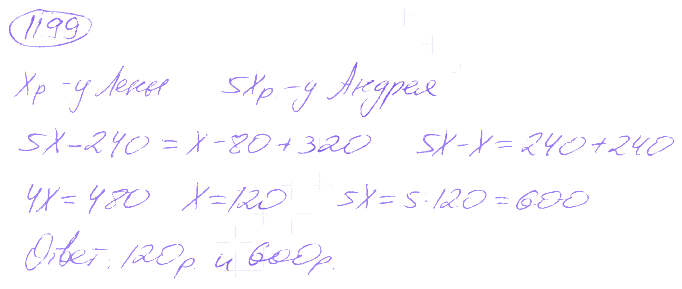 1199
Xр – у Лены 5Xр – у Андрея
5X – 240 = X – 80 + 320 5X – X = 240 + 240
4X = 480 X = 120 5X = 5 · 120 = 600
Ответ: 120р. и 600р.